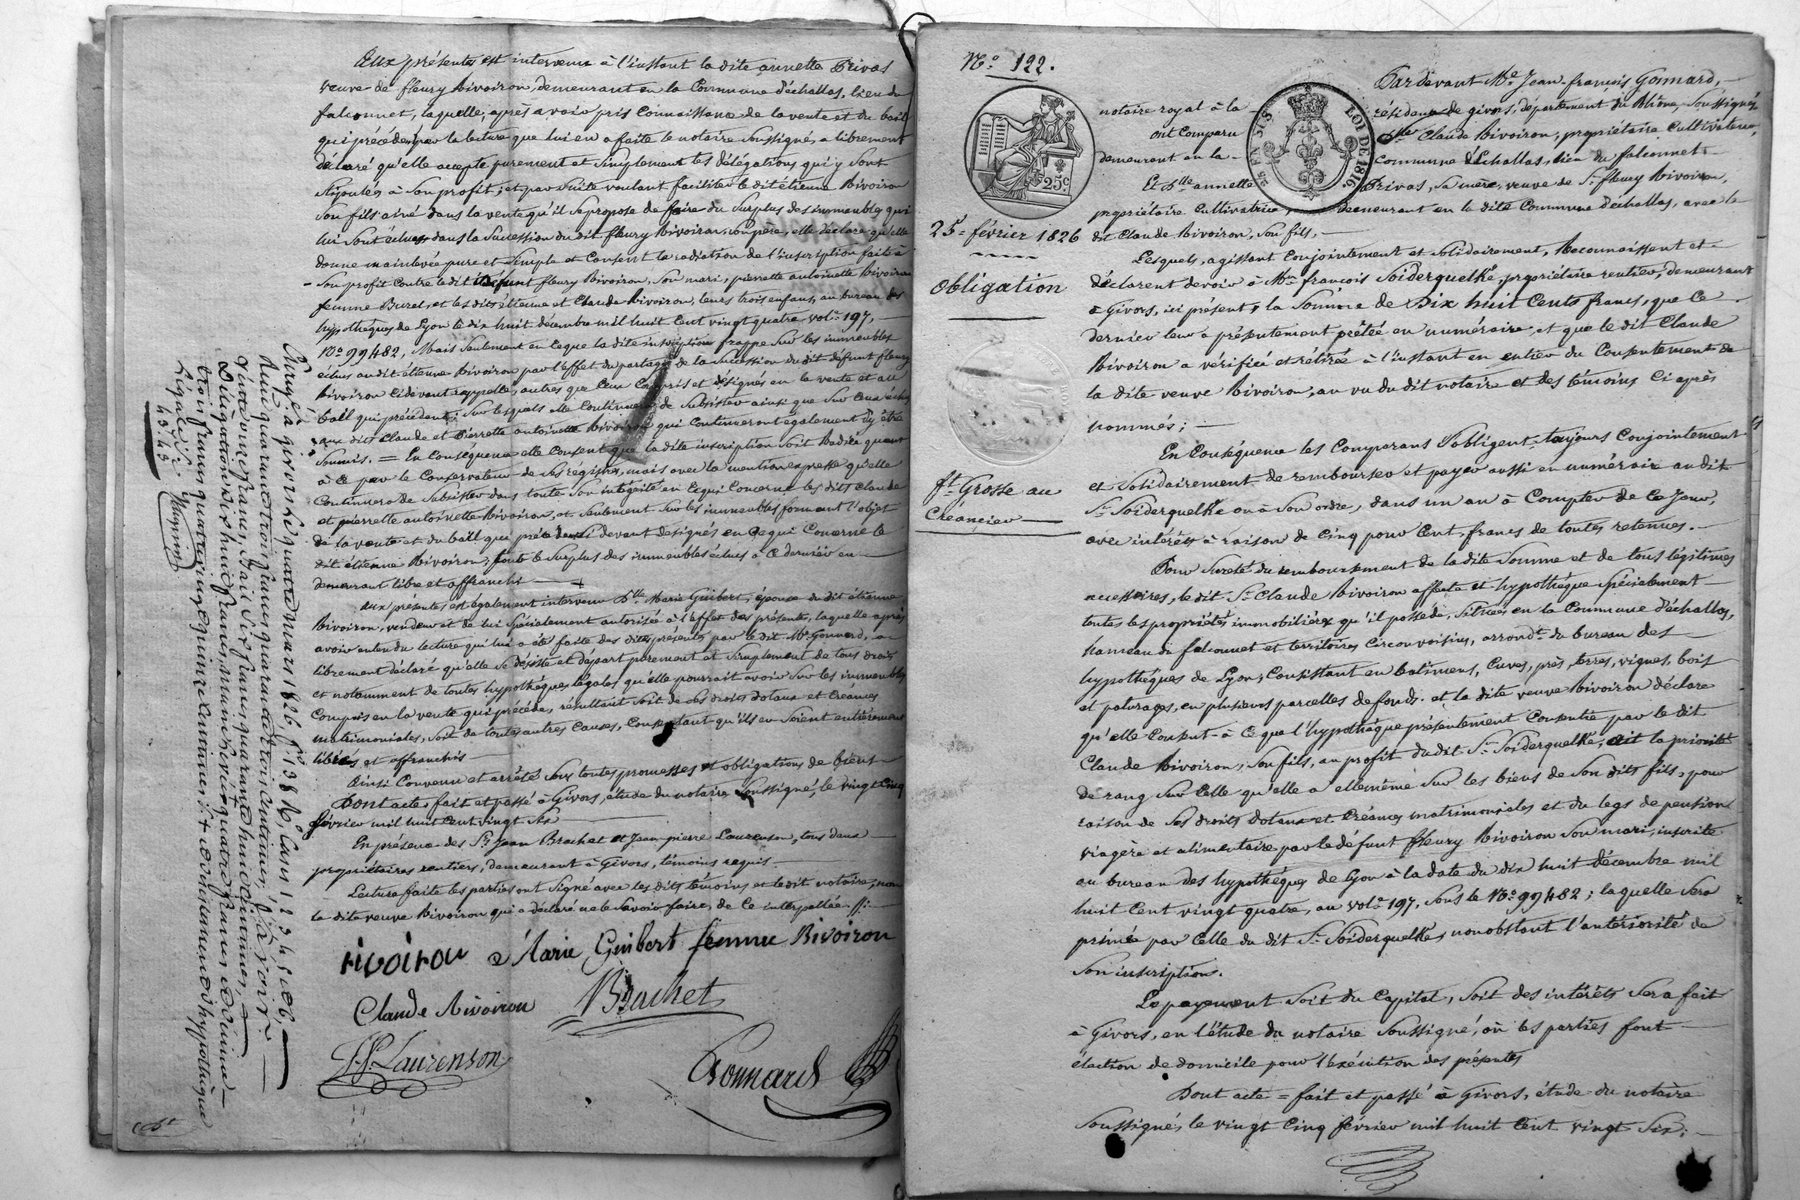 Aux présentes est intervenue à l'instant la dite annette Privas
veuve de fleury Rivoiron, demeurant en la Commune d'échallas, lieu du
falconnet, laquelle, après avoir pris Connaissance de la vente et du bail
qui précèdent par la lecture que lui en a faite le notaire soussigné, a librement
déclaré qu'elle accepte purement et simplement les délégations qui y sont
stipulées à son profit; et par suite voulant faciliter le dit étienne Rivoiron
son fils ainé dans la vente qu'il se propose de faire du surplus des immeubles qui
lui sont échus dans la succession du dit fleury Rivoiron, son père, elle déclare qu'elle
donne mainlevée pure et simple et Consent la radiation de l'inscription faite à
son profit Contre le dit défunt fleury Rivoiron, son mari, pierrette antoinette Rivoiron
femme Burel, et les dits étienne et Claude Rivoiron, leurs trois enfans, au bureau des
hypothèques de Lyon le dix huit décembre mil huit Cent vingt quatre vol. 197,
No. 99482, Mais seulement en ce que la dite inscription frappe sur les immeubles
échus au dit étienne Rivoiron par l'effet du partage de la succession du dit défunt fleury
Rivoiron ci devant rappellé, autres que Ceux Compris et désignés en la vente et au
bail qui précèdent; sur lesquels elle Continuera de subsister ainsi que sur Ceux échus
aux dits Claude et Pierrette antoinette Rivoiron qui Continueront également d'y être
soumis. = En Conséquence elle Consent que la dite inscription soit Radiée quant
à ce par le Conservateur de ses régistres, mais avec la mention expresse qu'elle
Continuera de subsister dans toute son intégrité en Ce qui Concerne les dits Claude
et pierrette antoinette Rivoiron, et seulement sur les immeubles formant l'objet
de la vente et du bail qui précèdent ci devant désignés en Ce qui Concerne le
dit étienne Rivoiron; tout le surplus des immeubles échus à Ce dernier en
demeurant libre et affranchi
Aux présentes est également intervenue Dlle Marie Guibert, épouse du dit étienne
Rivoiron, vendeur et de lui spécialement autorisée à l'effet des présentes, laquelle après
avoir entendu lecture qui lui a été faite des dites présentes par le dit Me Gonnard, a
librement déclaré qu'elle se désiste et départ purement et simplement de tous droits
et notamment de toutes hypothèques légales qu'elle pourrait avoir sur les immeubles
Compris en la vente qui précède, résultant soit de ses droits dotaux et Créances
matrimoniales, soit de toutes autres Causes, Consentant qu'ils en soient entièrement
libérés et affranchis
Ainsi Convenu et arrêté sous toutes promesses et obligations de biens
Dont acte, fait et passé à Givors, étude du notaire soussigné, le vingt Cinq
février mil huit Cent vingt six
En présence des Srs Jean Brachet et Jean pierre Laurenson, tous deux
propriétaires rentiers, demeurant à Givors, témoins requis
Lecture faite les parties ont signé avec les dits témoins et le dit notaire, non
la dite veuve Rivoiron qui a déclaré ne le savoir faire, de Ce interpellée.
rivoiron Marie Guibert femme Rivoiron
Claude Rivoiron Brachet
J. P. Laurenson Gonnard
Enregé à givors le quatre mars 1826, fo 138 Vo, Cases 1 2 3 4 5 et 6,
Reçu quarante trois francs quarante trois centimes, Savoir
Vente vingt francs, Bail six francs quarante huit centimes,
Délégation dix huit francs, mainlevée quatre francs et
trois francs quatre vingt quinze centimes
No. 122.
25 février 1826
Obligation
ft Grosse au
Créancier
25c
25 EN SUS. LOI DE 1816.
Par devant Me Jean françois Gonnard,
notaire royal à la résidence de givors, département du Rhône, soussigné
ont Comparu Sr Claude Rivoiron, propriétaire Cultivateur,
demeurant en la Commune d'échallas, lieu du falconnet
Et Dlle annette Privas, sa mère, veuve de Sr fleury Rivoiron,
propriétaire Cultivatrice, demeurant en la dite Commune d'échallas, avec le
dit Claude Rivoiron, son fils,
Lesquels, agissant Conjointement et solidairement, Reconnaissent et
déclarent devoir à Mr françois Soiderquelke, propriétaire rentier, demeurant
à Givors, ici présent, la somme de Dix huit Cents francs, que Ce
dernier leur a présentement prêtée en numéraire, et que le dit Claude
Rivoiron a vérifiée et rétirée à l'instant en entier du Consentement de
la dite veuve Rivoiron, au vu du dit notaire et des témoins Ci après
nommés;
En Conséquence les Comparans s'obligent toujours Conjointement
et solidairement de rembourser et payer aussi en numéraire au dit
Sr Soiderquelke ou à son ordre, dans un an à Compter de Ce Jour,
avec intérêts à raison de Cinq pour Cent, francs de toutes retenues.
Pour sureté du remboursement de la dite somme et de tous légitimes
accessoires, le dit Sr Claude Rivoiron affecte et hypothèque spécialement
toutes les propriétés immobilières qu'il possède, situées en la Commune d'échallas,
hameau du falconnet et territoires Circonvoisins, arrondt du bureau des
hypothèques de Lyon; Consistant en batimens, Cuves, près, terres, vignes, bois
et paturages, en plusieurs parcelles de fonds. et la dite veuve Rivoiron déclare
qu'elle Consent à Ce que l'hypothèque présentement Consentie par le dit
Claude Rivoiron, son fils, au profit du dit Sr Soiderquelke, ait la priorité
de rang sur Celle qu'elle a elle même sur les biens de son dits fils, pour
raison de ses droits dotaux et Créances matrimoniales et du legs de pension
viagère et alimentaire par le défunt fleury Rivoiron son mari, inscrite
au bureau des hypothèques de Lyon à la date du dix huit décembre mil
huit Cent vingt quatre, au vol. 197, sous le No. 99482; laquelle sera
primée par Celle du dit Sr Soiderquelke, nonobstant l'antériorité de
son inscription.
Le payement soit du Capital, soit des intérêts sera fait
à Givors, en l'étude du notaire soussigné, où les parties font
élection de domicile pour l'exécution des présentes
Dont acte = fait et passé à Givors, étude du notaire
soussigné, le vingt Cinq février mil huit Cent vingt six;